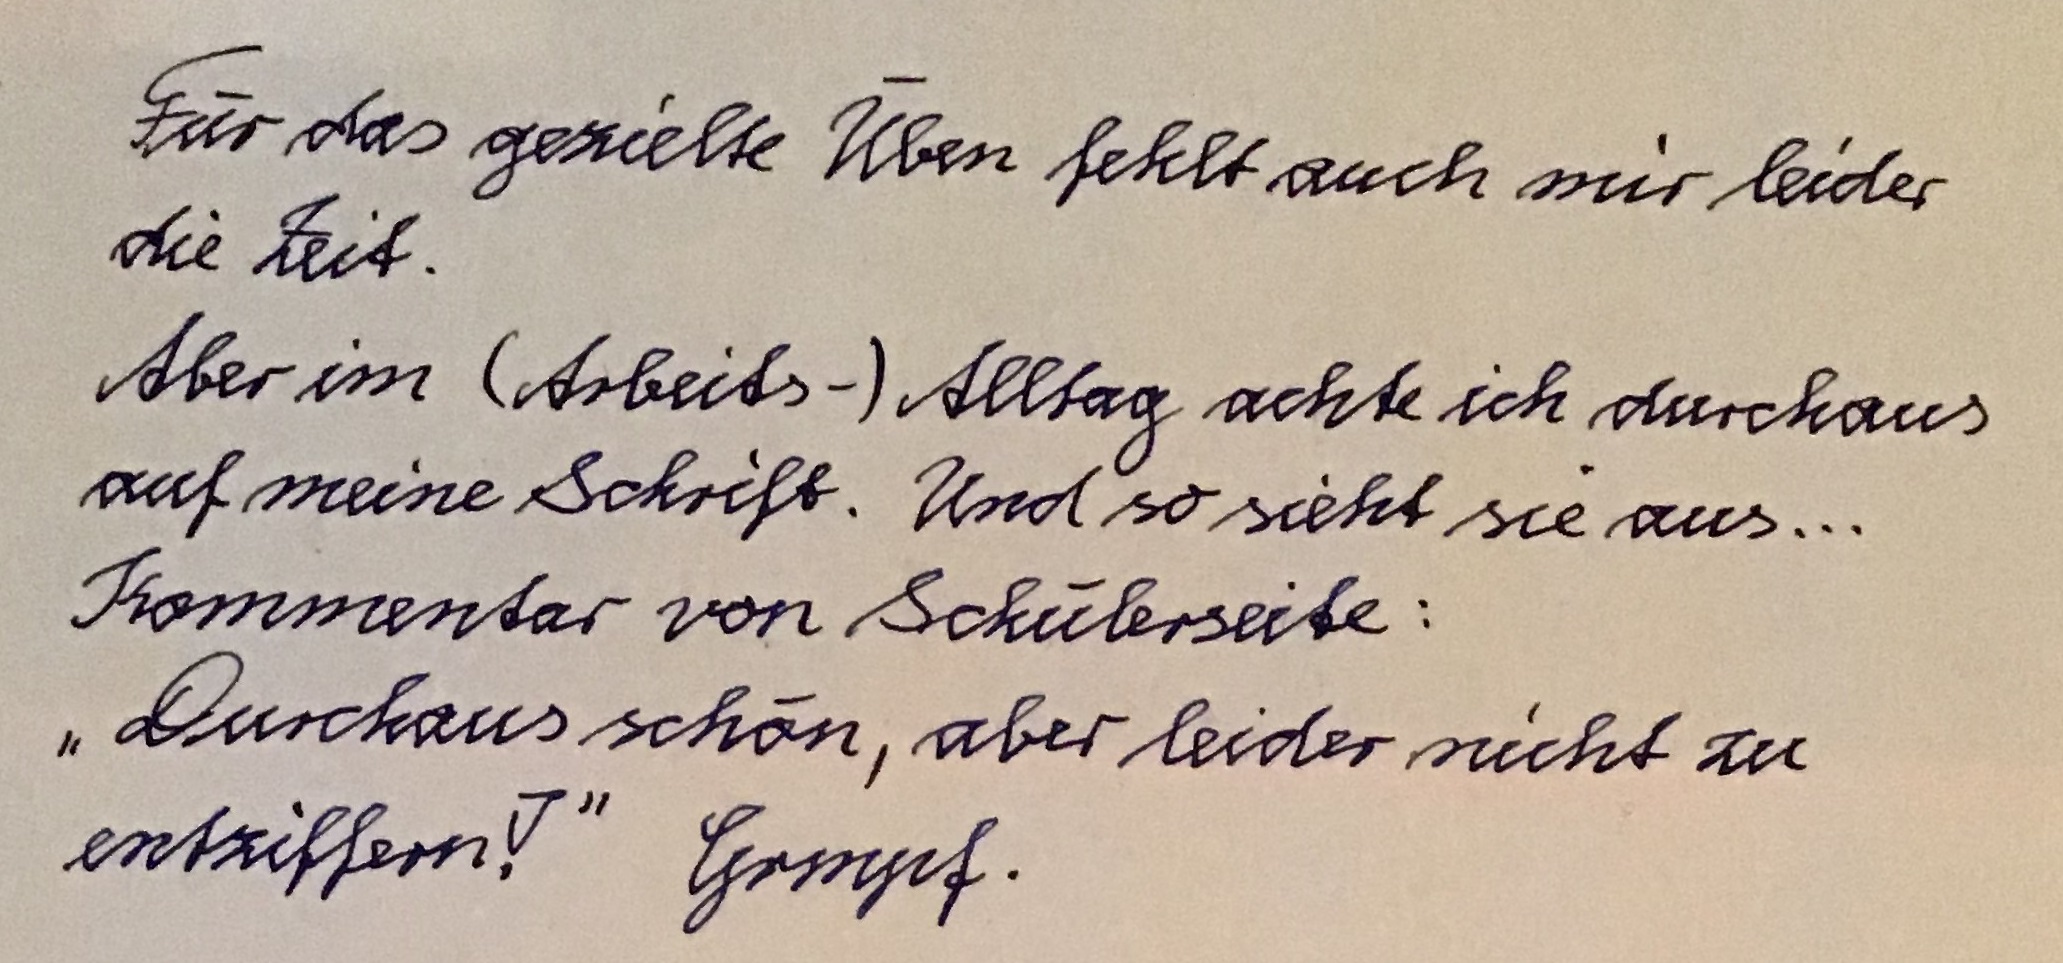 Für das gezielte Üben fehlt auch mir leider
die Zeit.
Aber im (Arbeits-) Alltag achte ich durchaus
auf meine Schrift. Und so sieht sie aus...
Kommentar von Schülerseite:
„Durchaus schön, aber leider nicht zu
entziffern!" Grmpf.